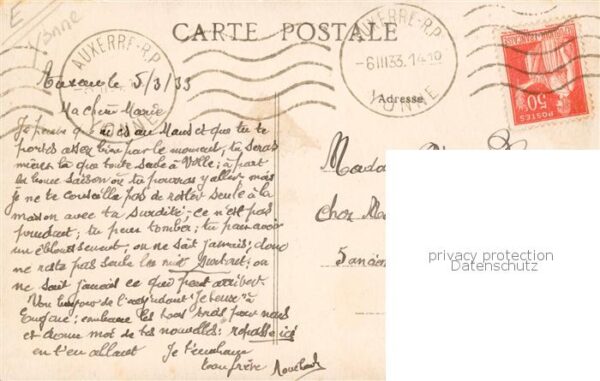 E
Yonne
CARTE POSTALE
AUXERRE-R.P.
YONNE
AUXERRE-R.P.
-6 III 33. 14 10
YONNE
50c
POSTES
Adresse
Auxerre le 5/3/33
Ma chère Marie
Je pense que tu es au Mans et que tu te
portes assez bien par le moment, tu seras
mieux là que toute seule à ; à part
la bonne saison où tu pourras y aller mais
je ne te conseille pas de rester seule à la
maison avec ta surdité; ce n'est pas
prudent; tu peux tomber; tu peux avoir
un éblouissement; on ne sait jamais; donc
ne reste pas seule la nuit surtout; on
ne sait jamais ce qui peut arriver.
Von toujours de "Jeteux" à
Eugène; embrasse les tous trois pour nous
et donne moi de tes nouvelles; repasse ici
en t'en allant Je t'embrasse
ton frère
Mada
Chez Ma
5 ancien
privacy protection
Datenschutz